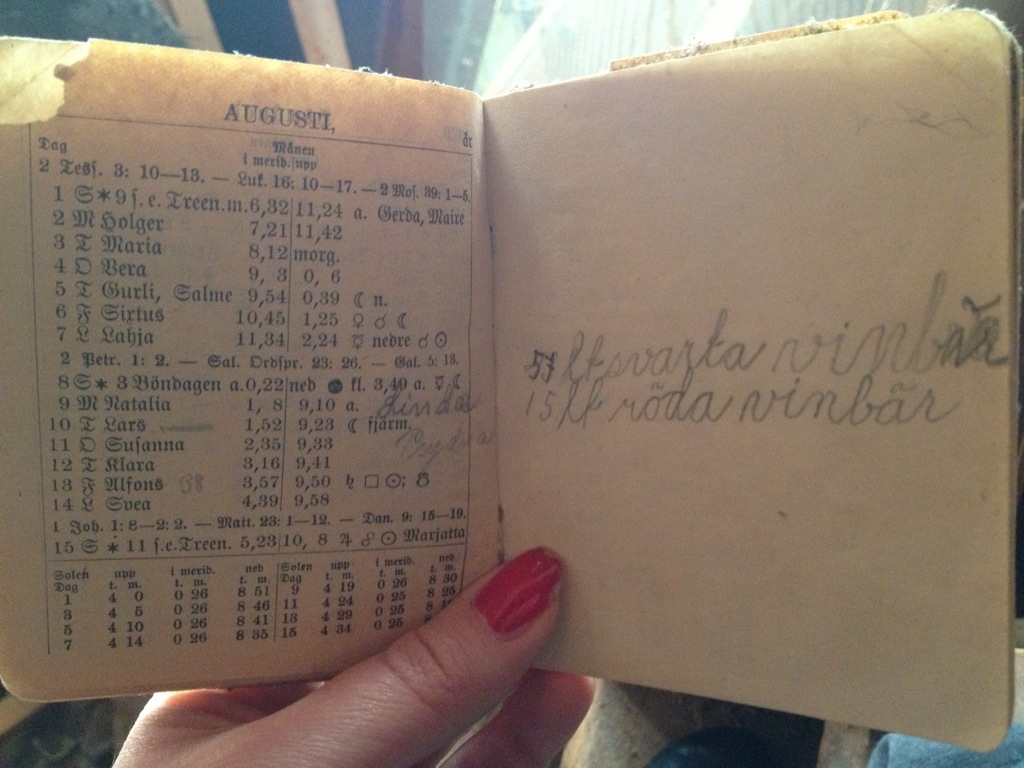 AUGUSTI,
år
Dag Månen
i merid. upp
2 Tess. 3: 10—13. — Luk. 16: 10—17. — 2 Mos. 39: 1—5.
1 S * 9 s. e. Treen. m. 6,32 11,24 a. Gerda, Maire
2 M Holger 7,21 11,42
3 T Maria 8,12 morg.
4 O Vera 9, 3 0, 6
5 T Gurli, Salme 9,54 0,39 ☾ n.
6 F Sixtus 10,45 1,25 ♀ ☌ ☾
7 L Lahja 11,34 2,24 ☿ nedre ☌ ☉
2 Petr. 1: 2. — Sal. Ordspr. 23: 26. — Gal. 5: 13.
8 S * 3 Böndagen a. 0,22 ned ● kl. 3,49 a. ☿ ☾
9 M Natalia 1, 8 9,10 a.
10 T Lars 1,52 9,23 ☾ fjärm.
11 O Susanna 2,35 9,33
12 T Klara 3,16 9,41
13 F Alfons 38 3,57 9,50 ♄ □ ☉; ☋
14 L Svea 4,39 9,58
1 Joh. 1: 8—2: 2. — Matt. 23: 1—12. — Dan. 9: 15—19.
15 S * 11 s. e. Treen. 5,23 10, 8 ♃ ☍ ☉ Marjatta
Solen upp i merid. ned Solen upp i merid. ned
Dag t. m. t. m. t. m. Dag t. m. t. m. t. m.
1 4 0 0 26 8 51 9 4 19 0 26 8 30
3 4 5 0 26 8 46 11 4 24 0 25 8 25
5 4 10 0 26 8 41 13 4 29 0 25 8
7 4 14 0 26 8 35 15 4 34 0 25 8
svarta vinbär
15 röda vinbär